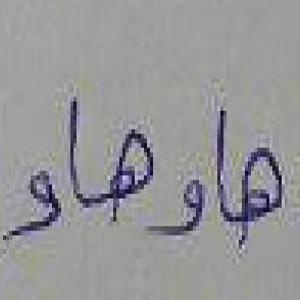 هاو هاو